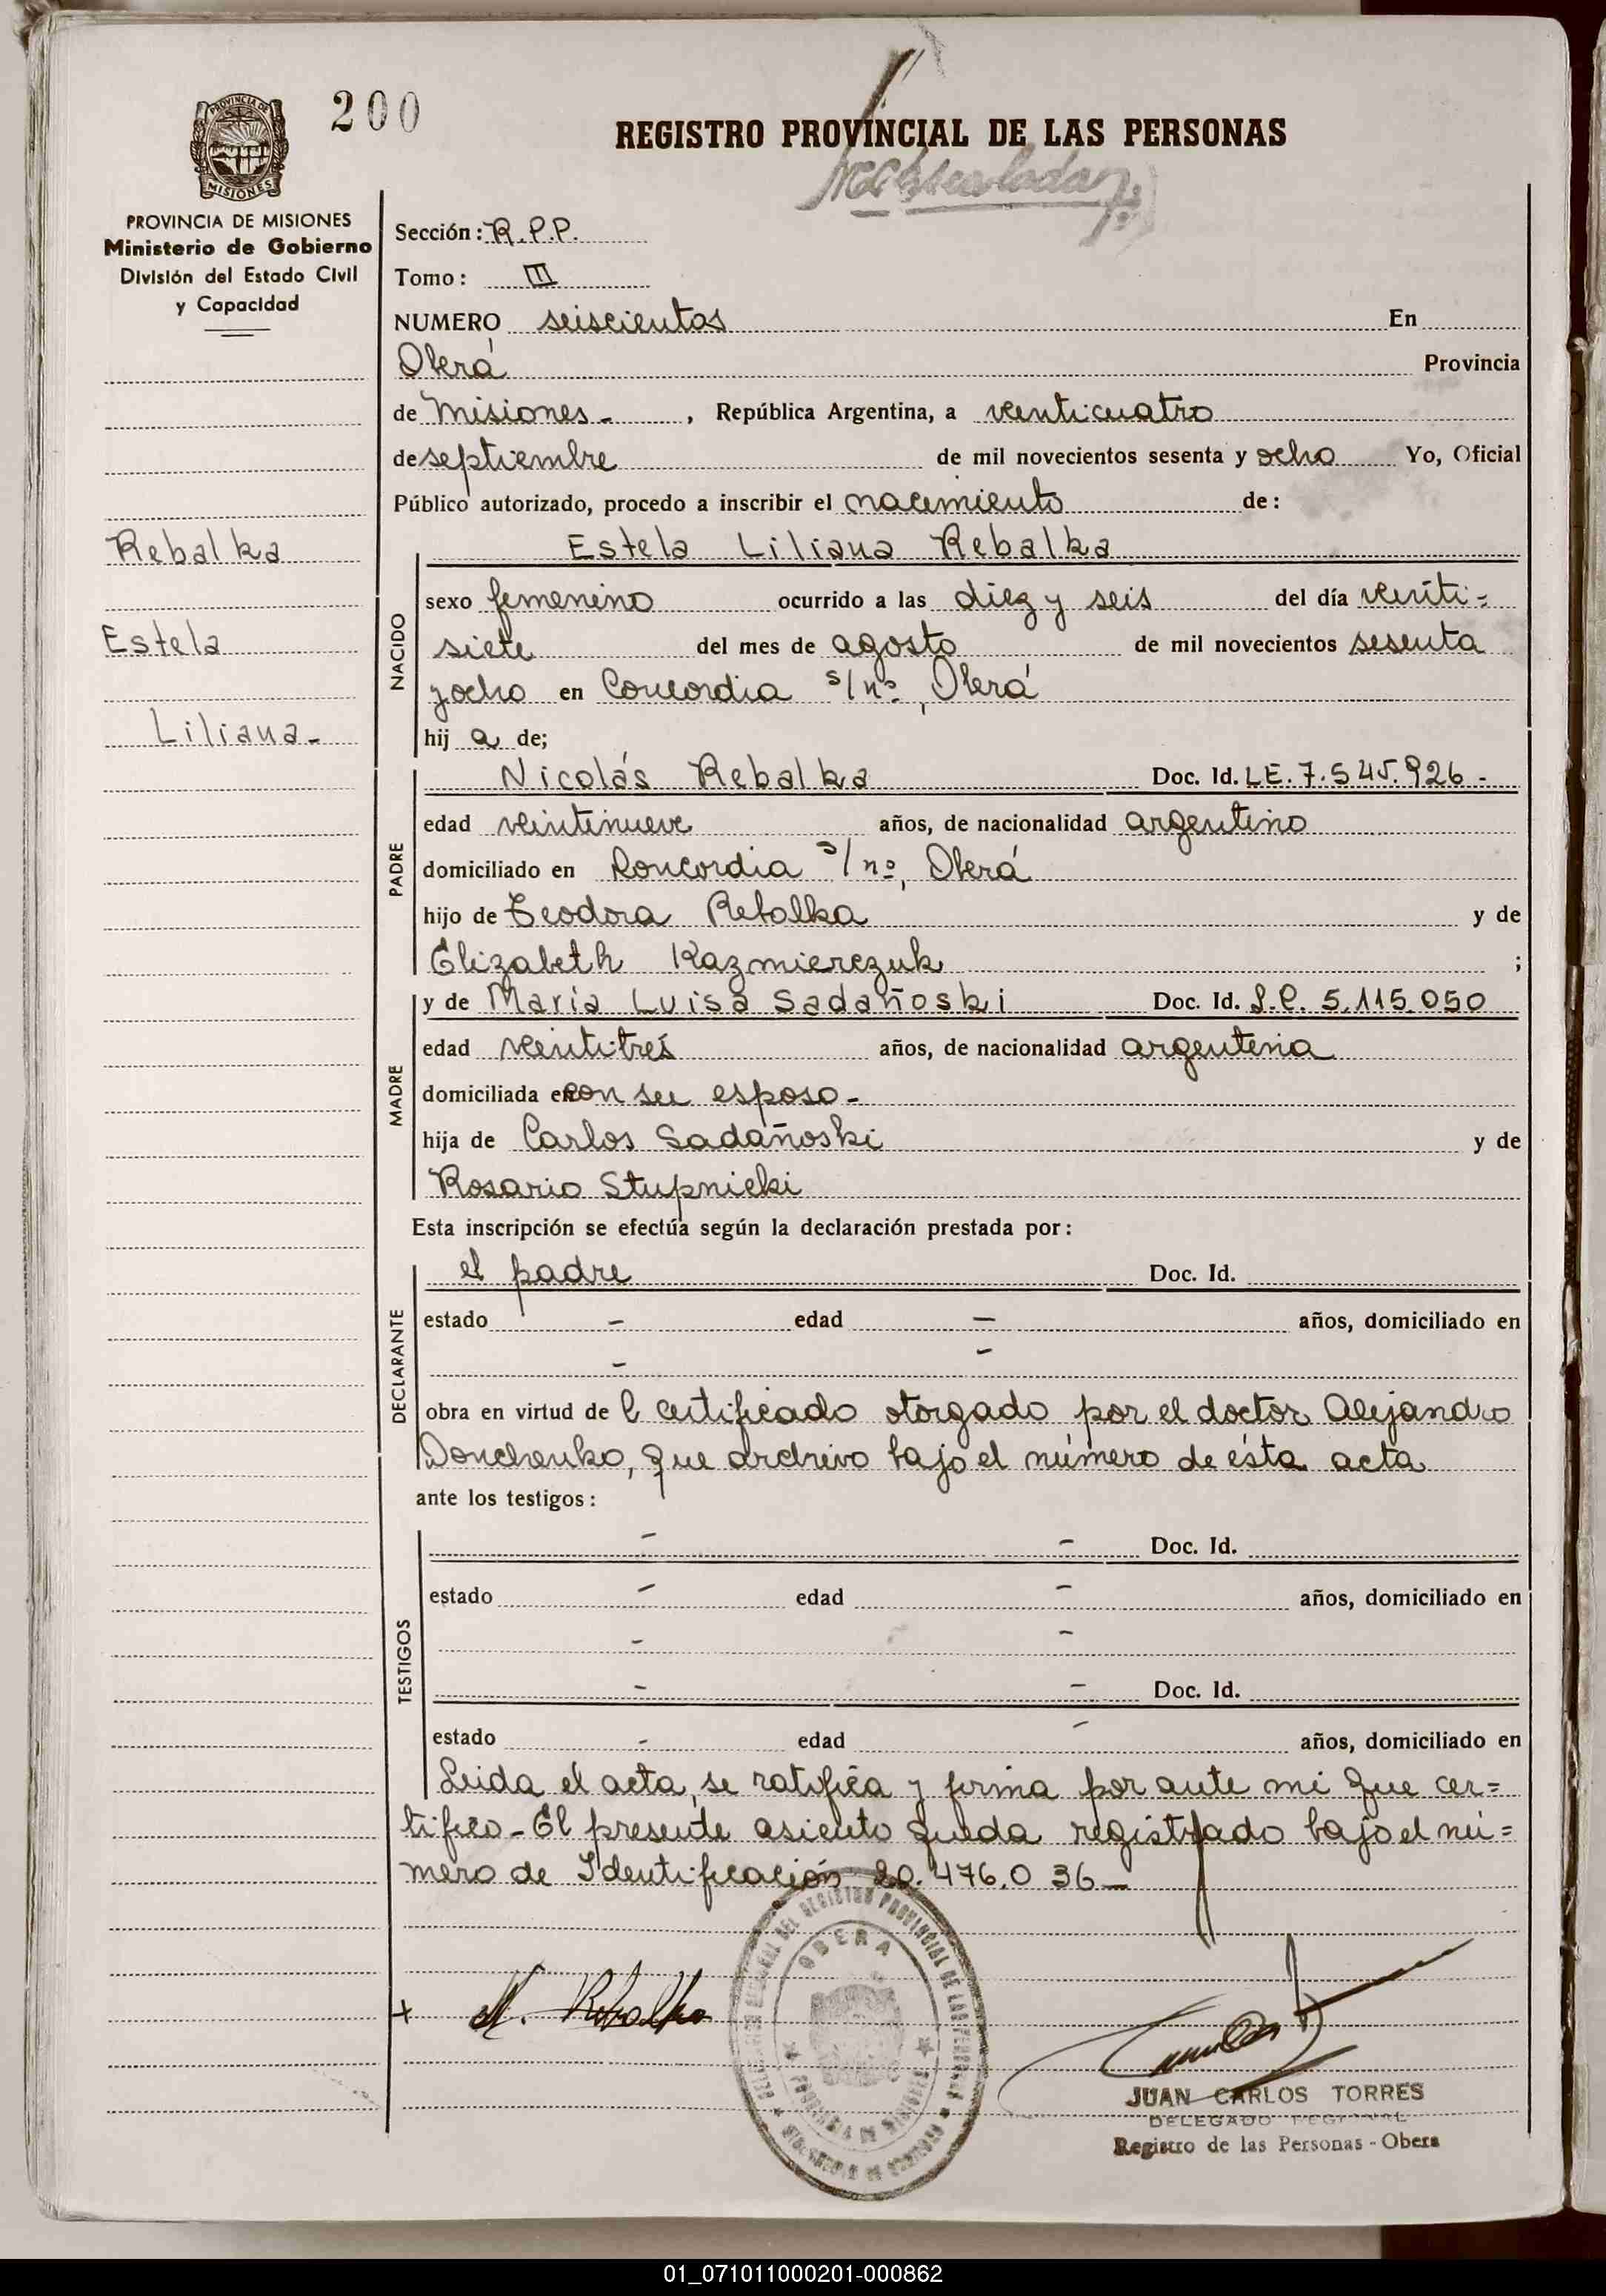 200
REGISTRO PROVINCIAL DE LAS PERSONAS
PROVINCIA DE
MISIONES
PROVINCIA DE MISIONES
Ministerio de Gobierno
División del Estado Civil
y Capacidad
Sección: R.P.P.
Tomo: III
NUMERO seiscientos En
Oberá Provincia
de Misiones-, República Argentina, a venticuatro
de septiembre de mil novecientos sesenta y ocho Yo, Oficial
Público autorizado, procedo a inscribir el nacimiento de:
Rebalka
Estela
Liliana-
Estela Liliana Rebalka
NACIDO
sexo femenino ocurrido a las diez y seis del día venti=
siete del mes de agosto de mil novecientos sesenta
y ocho en Concordia s/nº, Oberá
hij a de;
PADRE
Nicolás Rebalka Doc. Id. LE. 7.545.926-
edad veintinueve años, de nacionalidad argentino
domiciliado en Concordia s/nº, Oberá
hijo de Teodora Rebalka y de
Elizabeth Kazmierczuk ;
MADRE
y de María Luisa Sadañoski Doc. Id. L.C. 5.115.050
edad ventitrés años, de nacionalidad argentina
domiciliada en con su esposo-
hija de Carlos Sadañoski y de
Rosario Stupnicki
Esta inscripción se efectúa según la declaración prestada por:
DECLARANTE
el padre Doc. Id.
estado - edad - años, domiciliado en
- -
obra en virtud de l certificado otorgado por el doctor Alejandro
Donchenko, que archivo bajo el número de ésta acta
ante los testigos:
TESTIGOS
- - Doc. Id.
estado - edad - años, domiciliado en
- -
- - Doc. Id.
estado - edad - años, domiciliado en
Leida el acta, se ratifica y firma por ante mi que cer=
tifico-El presente asiento queda registrado bajo el nú=
mero de Identificación 20.476.036-
OBERA
+ N. Rebalka
JUAN CARLOS TORRES
DELEGADO REGIONAL
Registro de las Personas - Obera
01_071011000201-000862